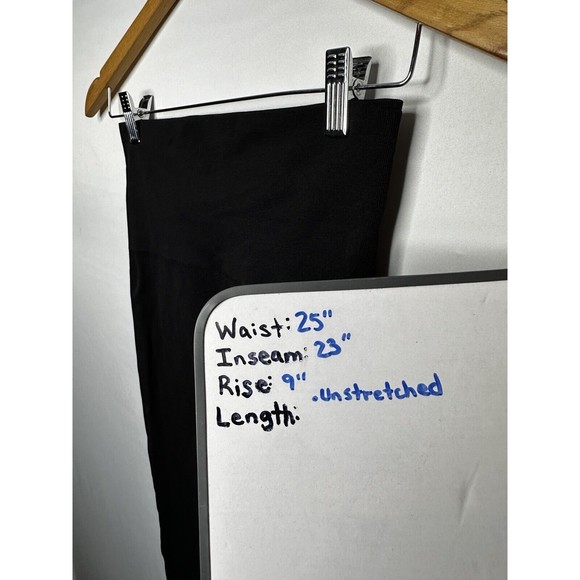 Waist: 25"
Inseam: 23"
Rise: 9"
.Unstretched
Length: